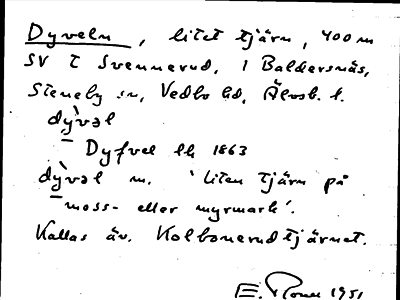 Dyveln, litet tjärn, 400 m
SV t Svennerud, i Baldersnäs,
Steneby sn, Vedbo hd, Älvsb. l.
dỳvəl
Dyfvel lk 1863
dỳvəl m. 'liten tjärn på
moss- eller myrmark'.
Kallas äv. Kolbonerudtjärnet.
1951